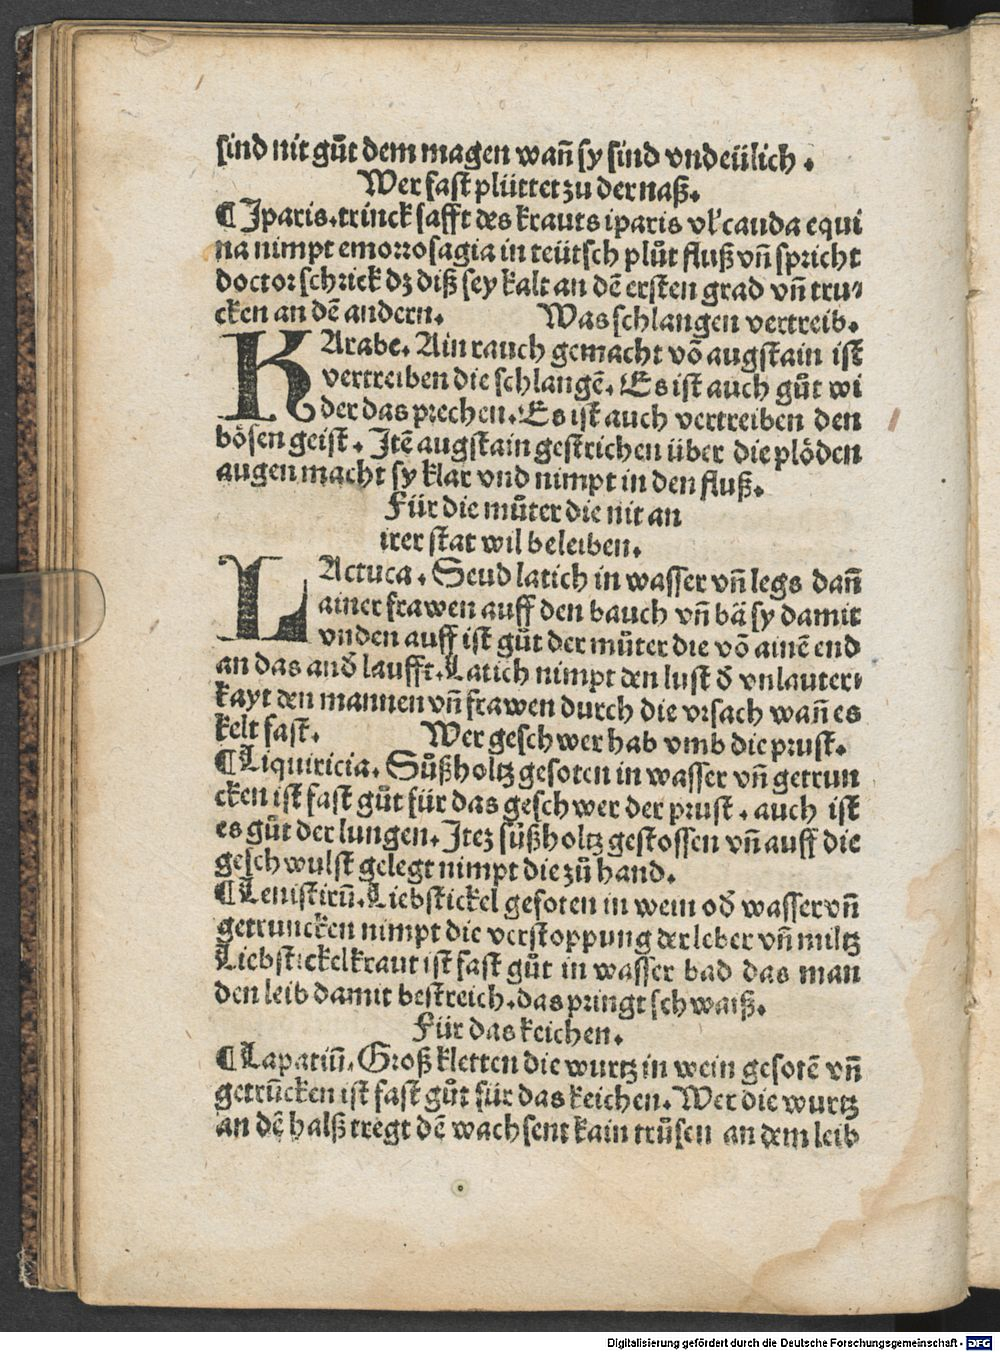 sind nit gůt dem magen wañ sy sind vndeülich.
Wer fast plüttet zu der naß.
¶ Jparis. trinck safft des krauts iparis vl' cauda equi
na nimpt emorrosagia in teütsch plůt fluß vñ spricht
doctor schrick dz diß sey kalt an dē ersten grad vñ tru⸗
cken an dē andern. Was schlangen vertreib.
KArabe. Ain rauch gemacht võ augstain ist
vertreiben die schlangē. Es ist auch gůt wi
der das prechen. Es ist auch vertreiben den
bösen geist. Jtē augstain gestrichen über die plöden
augen macht sy klar vnd nimpt in den fluß.
Für die můter die nit an
irer stat wil beleiben.
LActuca. Seud latich in wasser vñ legs dañ
ainer frawen auff den bauch vñ bä sy damit
vnden auff ist gůt der můter die võ ainē end
an das and̄ laufft. Latich nimpt den lust d̄ vnlauter⸗
kayt den mannen vñ frawen durch die vrsach wañ es
kelt fast. Wer geschwer hab vmb die prust.
¶ Liquiricia. Sůßholtz gesoten in wasser vñ getrun
cken ist fast gůt für das geschwer der prust. auch ist
es gůt der lungen. Jtez sůßholtz gestossen vñ auff die
geschwulst gelegt nimpt die zů hand.
¶ Lenistirū. Liebstickel gesoten in wein od̄ wasser vñ
getruncken nimpt die verstoppung der leber vñ miltz
Liebstickelkraut ist fast gůt in wasser bad das man
den leib damit bestreich. das pringt schwaiß.
Für das keichen.
¶ Lapatiū. Groß kletten die wurtz in wein gesotē vñ
getrūcken ist fast gůt für das keichen. Wer die wurtz
an dē halß tregt dē wachsent kain trůsen an dem leib
Digitalisierung gefördert durch die Deutsche Forschungsgemeinschaft - DFG